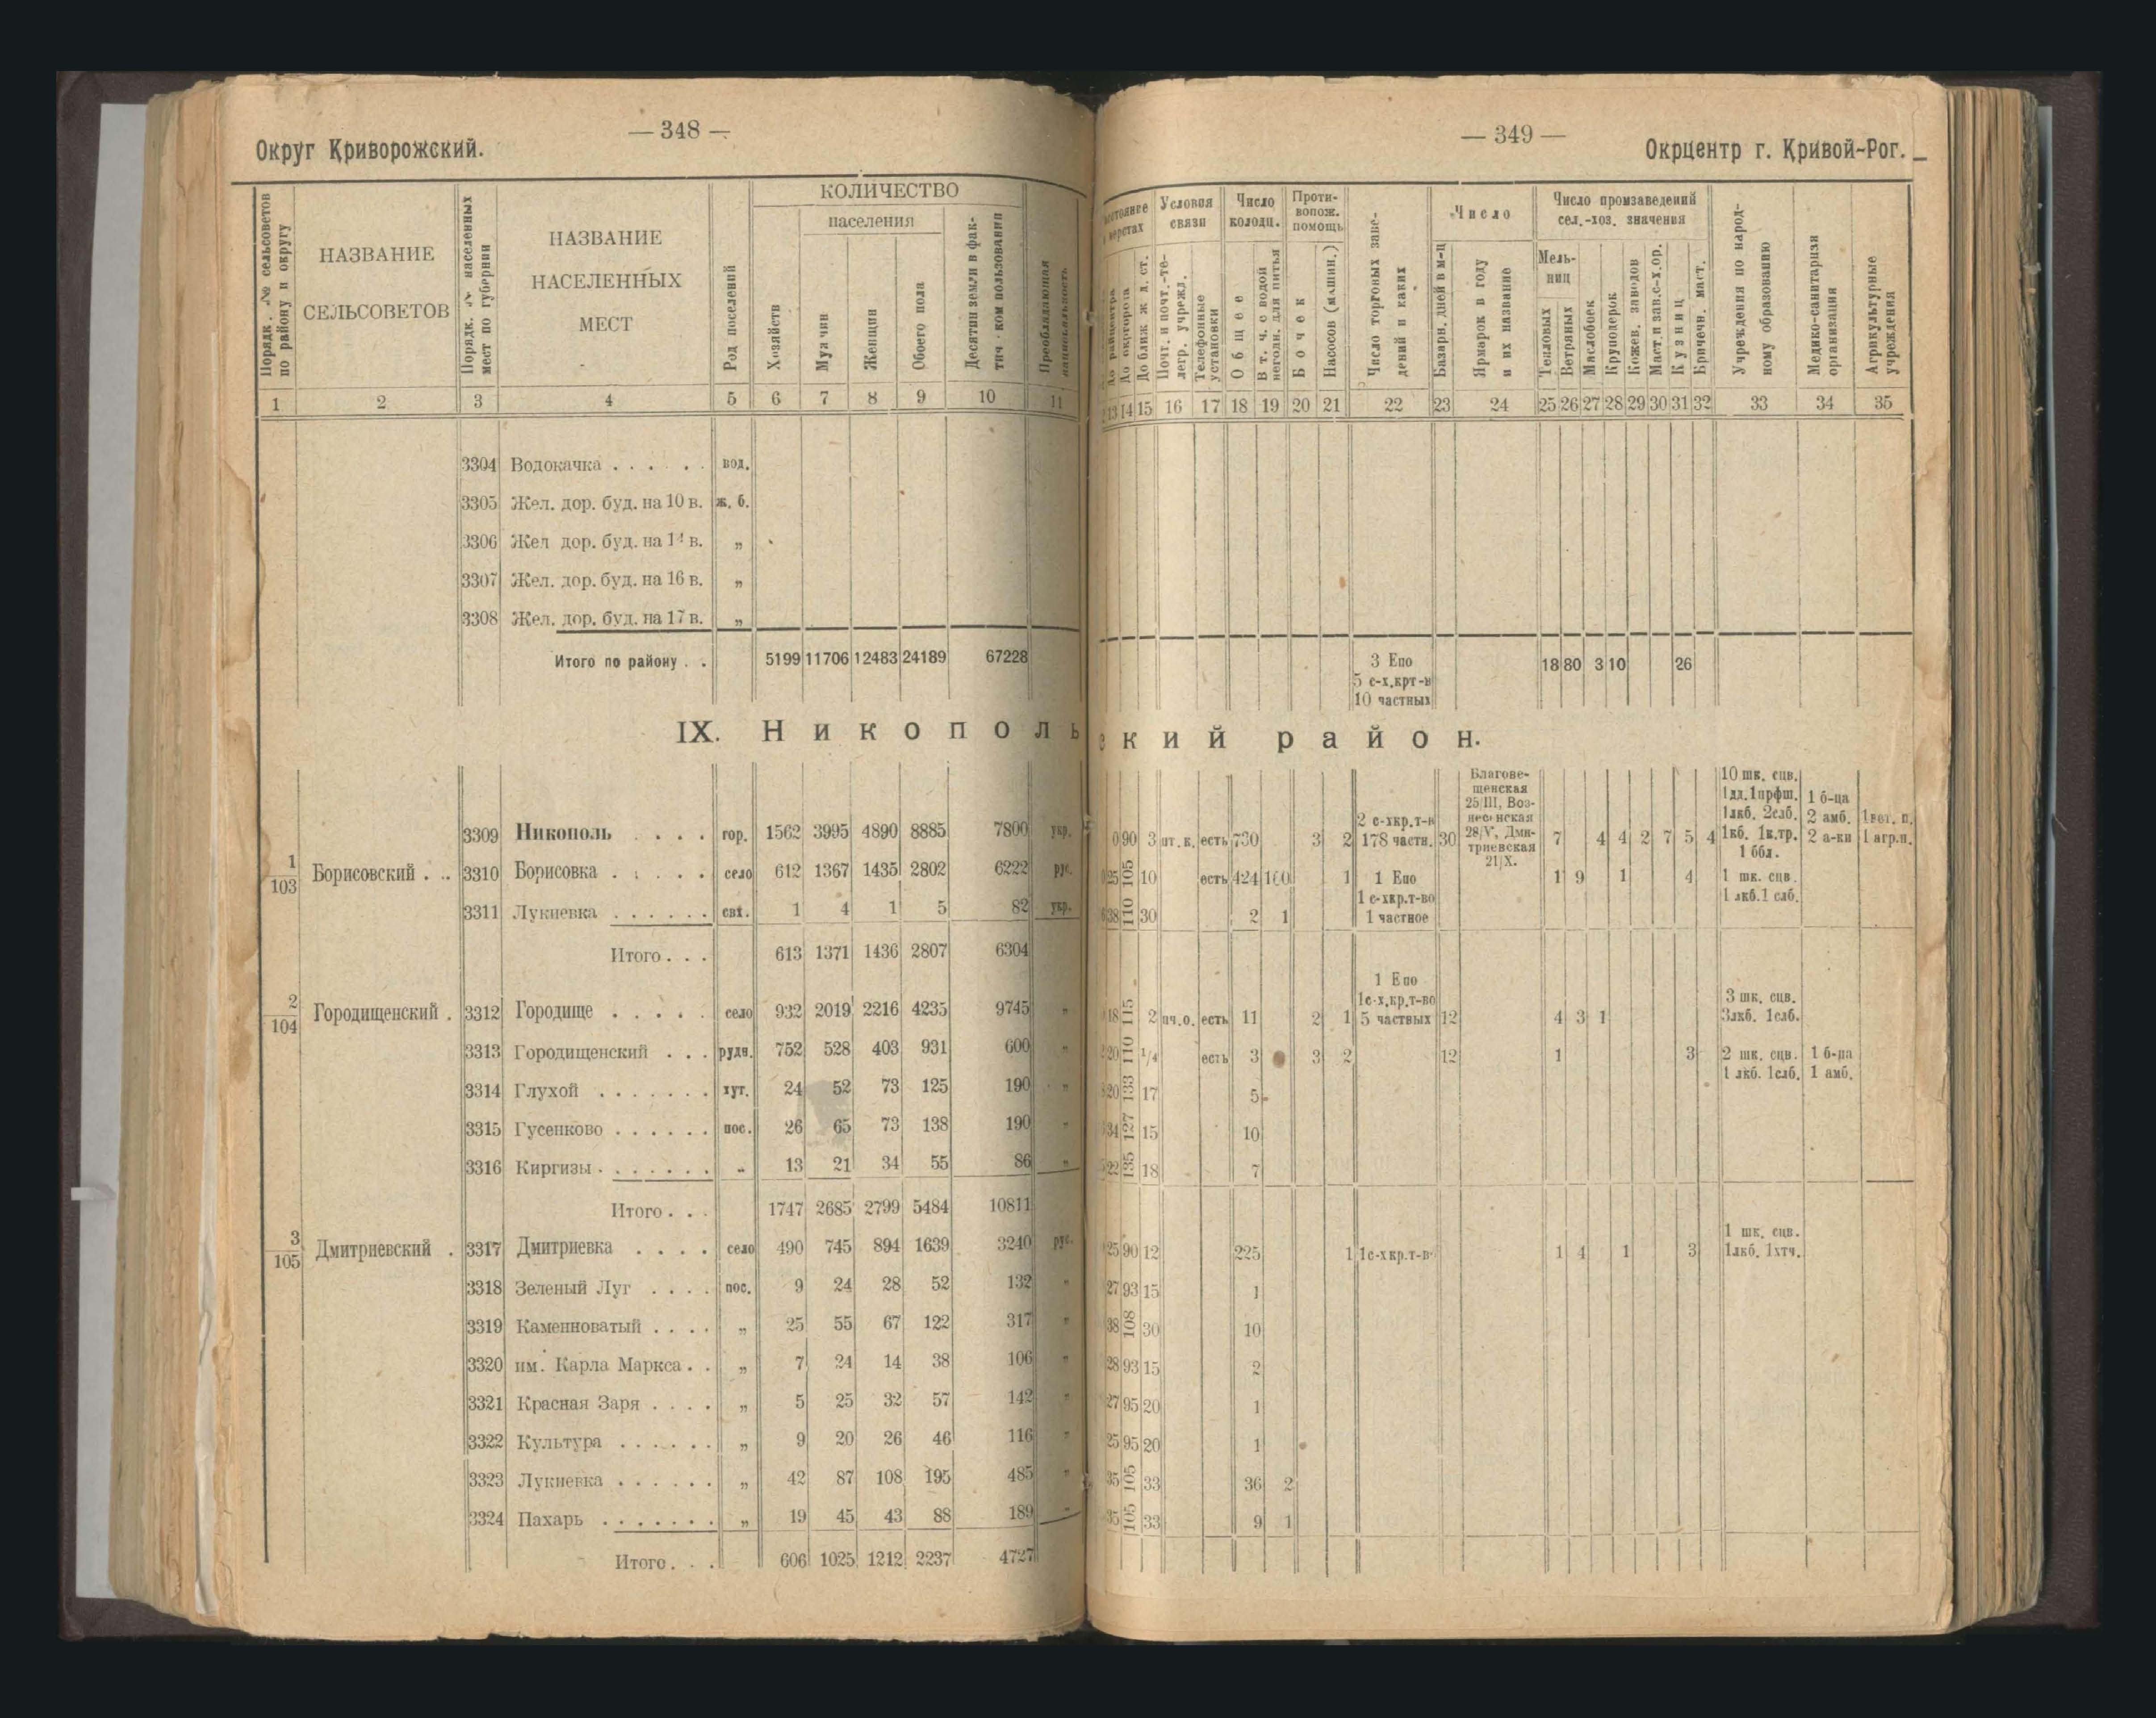 — 348 —
Округ Криворожский.
КОЛИЧЕСТВО
населения
Порядк. № сельсоветов по району и округу
НАЗВАНИЕ СЕЛЬСОВЕТОВ
Порядк. № населенных мест по губернии
НАЗВАНИЕ НАСЕЛЕННЫХ МЕСТ
Род поселений
Хозяйств
Мужчин
Женщин
Обоего пола
Десятин земли в фактич‑ком пользовании
Преобладающая национальность
1 2 3 4 5 6 7 8 9 10 11
3304 Водокачка . . . . . вод.
3305 Жел. дор. буд. на 10 в. ж. б.
3306 Жел дор. буд. на 14 в. „
3307 Жел. дор. буд. на 16 в. „
3308 Жел. дор. буд. на 17 в. „
Итого по району . . 5199 11706 12483 24189 67228
IX. Никополь
3309 Никополь . . . . гор. 1562 3995 4890 8885 7800 укр.
1/103 Борисовский . . 3310 Борисовка . . . . . село 612 1367 1435 2802 6222 рус.
3311 Лукиевка . . . . . . 1 4 1 5 82 укр.
Итого . . . 613 1371 1436 2807 6304
2/104 Городищенский . 3312 Городище . . . . . село 932 2019 2216 4235 9745 „
3313 Городищенский . . . рудн. 752 528 403 931 600 „
3314 Глухой . . . . . . . хут. 24 52 73 125 190 „
3315 Гусенково . . . . . . пос. 26 65 73 138 190 „
3316 Киргизы . . . . . . . „ 13 21 34 55 86 „
Итого . . . 1747 2685 2799 5484 10811
3/105 Дмитриевский . 3317 Дмитриевка . . . . село 490 745 894 1639 3240 рус.
3318 Зеленый Луг . . . . пос. 9 24 28 52 132 „
3319 Каменноватый . . . . „ 25 55 67 122 317 „
3320 им. Карла Маркса . . „ 7 24 14 38 106 „
3321 Красная Заря . . . . „ 5 25 32 57 142 „
3322 Культура . . . . . . „ 9 20 26 46 116 „
3323 Лукиевка . . . . . . „ 42 87 108 195 485 „
3324 Пахарь . . . . . . . „ 19 45 43 88 189 „
Итого . . . 606 1025 1212 2237 4727
— 349 —
Окрцентр г. Кривой-Рог.
Условия связи
Число колодц.
Противопож. помощь
Число
Число произведений сел.-хоз. значения
До райцентра
До окргорода
До ближ ж д. ст.
Почт. и почт.-телегр. учрежд.
Телефонные установки
Общее
В т. ч. с водой негодн. для питья
Бочек
Насосов (машин.)
Число торговых заведений и каких
Базарн. дней в м-ц
Ярмарок в году и их название
Мельниц
Тепловых
Ветряных
Маслобоек
Круподерок
Кожев. заводов
Маст. и зав. с-х. ор.
Кузниц
Бричечн. маст.
Учреждения по народному образованию
Медико-санитарня организация
Агрикультурные учреждения
13 14 15 16 17 18 19 20 21 22 23 24 25 26 27 28 29 30 31 32 33 34 35
3 Епо
5 с-х.крт-в
10 частных
18 80 3 10 26
ский район.
0 90 3 пт. к. есть 730 3 2
2 с-хкр.т-в
178 части.
30
Благовещенская 25/III, Вознесенская 28/V, Дмитриевская 21/X.
7 4 4 2 7 5 4
10 шк. сцв.
1дд. 1прфш.
1лкб. 2слб.
1кб. 1к.тр.
1 ббл.
1 б-ца
2 амб.
2 а-ки
1вет. п.
1 агр.п.
25 105 10 есть 424 160 1 1 Епо 1 9 1 4 1 шк. сцв.
1 с-хкр.т-во 1 лкб.1 слб.
38 110 30 2 1 1 частное
1 Епо
1с-х.кр.т-во
18 115 2 пч.о. есть 11 2 1 5 частвых 12 4 3 1
3 шк. сцв.
3лкб. 1слб.
20 110 1/4 есть 3 3 2 12 1 3 2 шк. сцв. 1 б-ца
1 лкб. 1слб. 1 амб.
20 133 17 5
34 127 15 10
22 135 18 7
1 шк. сцв.
25 90 12 225 1 1с-хкр.т-в 1 4 1 3 1лкб. 1хтч.
27 93 15 1
38 108 30 10
28 93 15 2
27 95 20 1
25 95 20 1
35 105 33 36 2
35 105 33 9 1